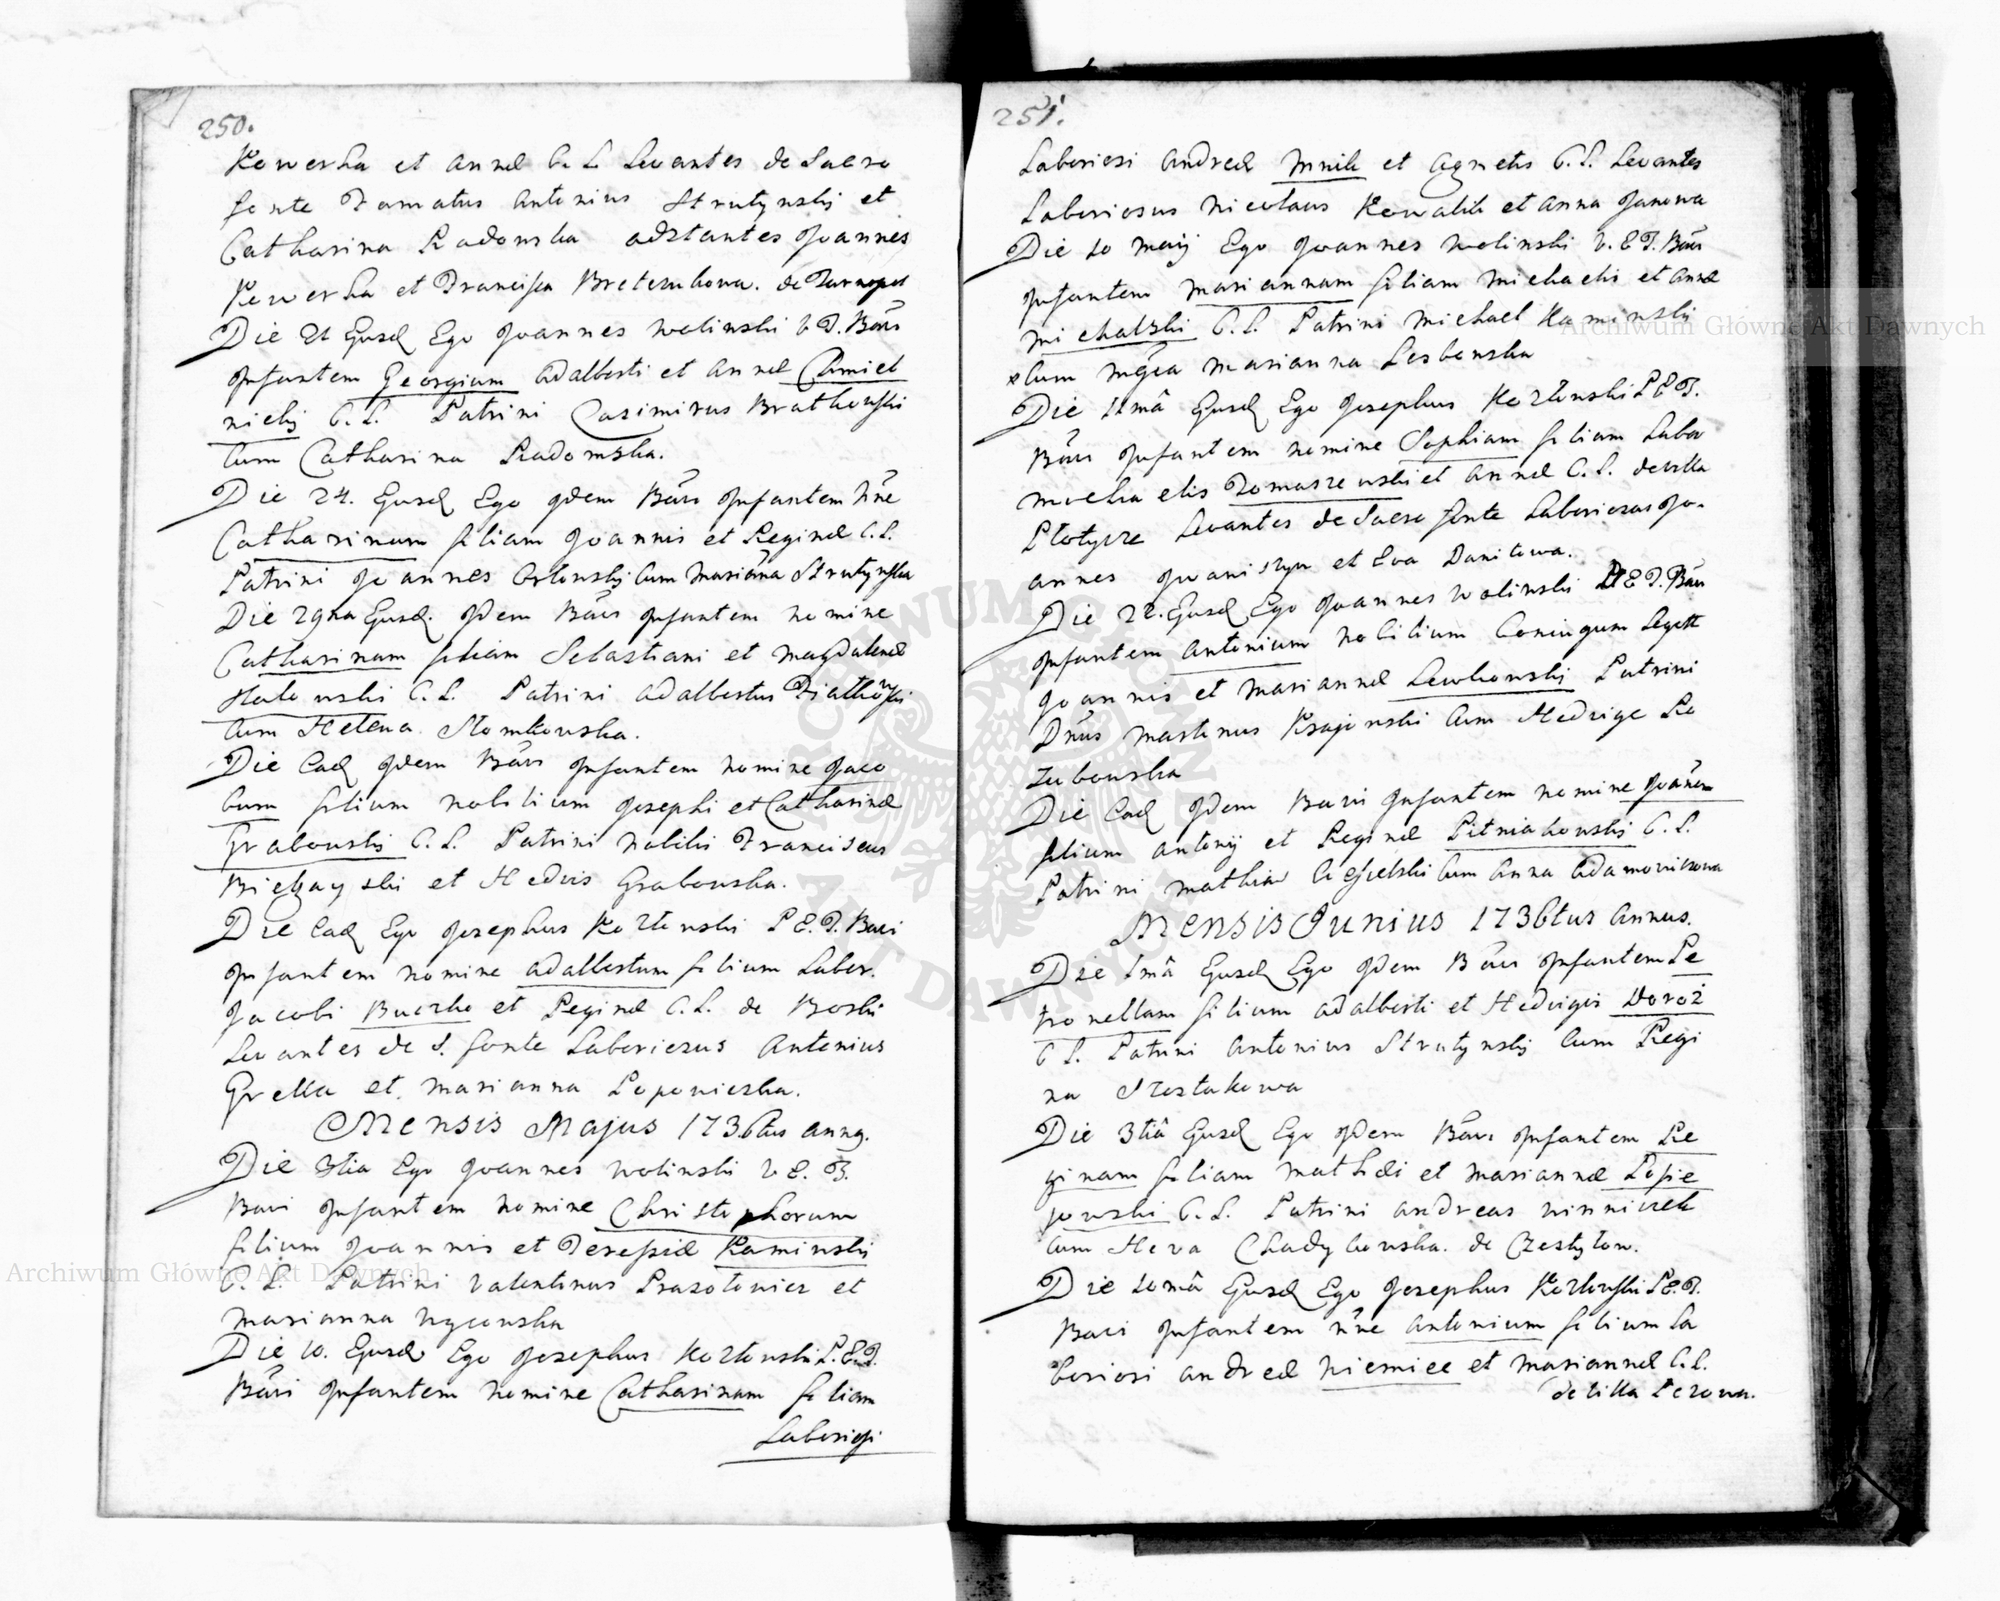 250.
Kowerka et Annæ C. L. Levantes de Sacro
fonte Famatus Antonius Strutynskij et
Catharina Radomska adstantes Joannes
Kowerka et Francisca de Tarnopol
Die 21 Ejusd Ego Joannes Wolinski V. P. Bavi
Infantem Georgium Adalberti et Annæ Chmiel
nickij C. L. Patrini Casimirus Bratkowski
Cum Catharina Radomska.
Die 24. Ejusd Ego Idem Bavi Infantem Nne
Catharinam filiam Joannis et Reginæ C. L.
Patrini Joannes Orlowskij Cum Mariana Strutynska
Die 29na Ejusd. Idem Bavi Infantem nomine
Catharinam filiam Sebastiani et Magdalenæ
C. L. Patrini Adalbertus Fiatkowski
Cum Helena Slomkowska.
Die Ead Idem Bavi Infantem nomine Jaco
bum filium Nobilium Josephi et Catharinæ
Grabowskij C. L. Patrini Nobilis Franciscus
et Hedvis Grabowska.
Die Ead Ego Josephus Kozlowski P. E. T. Bavi
Infantem nomine Adalbertum filium Labor.
Jacobi Buczko et Reginæ C. L. de Borki
Levantes de S. fonte Laboriosus Antonius
Grella et Marianna Popowiczka.
Mensis Majus 1736tus annq.
Die 3tia Ego Joannes Wolinski V. E. T.
Bavi Infantem nomine Christophorum
filium Joannis et Teressiæ Kaminskij
C. L. Patrini Valentinus et
Marianna
Die 10. Ejusd Ego Josephus Kozlowski P. E. T.
Bavi Infantem nomine Catharinam filiam
Laboriosi
251.
Laboriosi Andreæ Mnik et Agnetis C. L. Levantes
Laboriosus Nicolaus Kowalik et Anna Janowa
Die 10 Maij Ego Joannes Wolinski V. E. T. Bavi
Infantem Mariannam filiam Michaelis et Annæ
Michalski C. L. Patrini Michael Kaminskij
Cum Marianna
Die 11mâ Ejusd Ego Josephus Kozlowski P. E. T.
Bavi Infantem nomine Sophiam filiam Labo
Michaelis Tomaszewski et Annæ C. L. de villa
Plotycze Levantes de Sacro fonte Laboriosus Jo-
annes et Eva Danilowa.
Die 22. Ejusd Ego Joannes Wolinski E. T. Bavi
Infantem Antonium Nobilium Coniugum Legitt
Joannis et Mariannæ Lewkowskij Patrini
Dnus Martinus Krajewski Cum Hedvige Ko
zubowska
Die Ead Idem Bavi Infantem nomine Joanem
filium Antonij et Reginæ Pitniakowskij C. L.
Patrini Mathias Ciesielski Cum Anna Adamowiczowa
Mensis Junius 1736tus Annus.
Die 1mâ Ejusd Ego Idem Bavi Infantem Pe
tronellam filium Adalberti et Hedvigis Woroż
C L. Patrini Antonius Strutynskij Cum Regi
na Szostakowa
Die 3tiâ Ejusd Ego Idem Bavi Infantem Re
ginam filiam Mathæi et Mariannæ Losie
jowski C. L. Patrini Andreas Winniczek
Cum Heva de Czestylow.
Die 10mâ Ejusd Ego Josephus Kozlowski P. E. T.
Bavi Infantem nne Antonium filium La
boriosi Andreæ Niemiec et Mariannæ C. L.
de Villa
Archiwum Główne Akt Dawnych
Archiwum Główne Akt Dawnych
ARCHIWUM GŁÓWNE AKT DAWNYCH